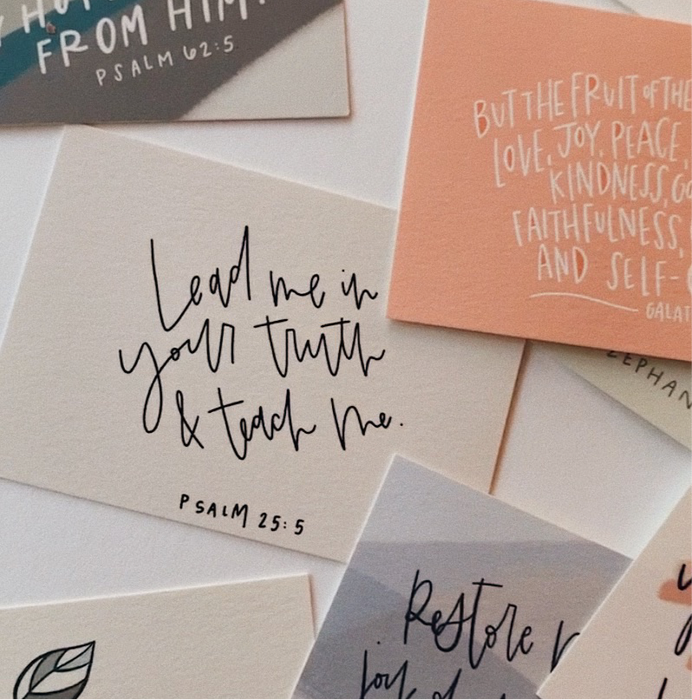 FROM HIM.
PSALM 62:5
BUT THE FRUIT OF THE
LOVE, JOY, PEACE,
KINDNESS, GO
FAITHFULNESS,
AND SELF-
GALAT
Lead me in
your truth
& teach me.
PSALM 25:5
ZEPHAN
Restore
joy of